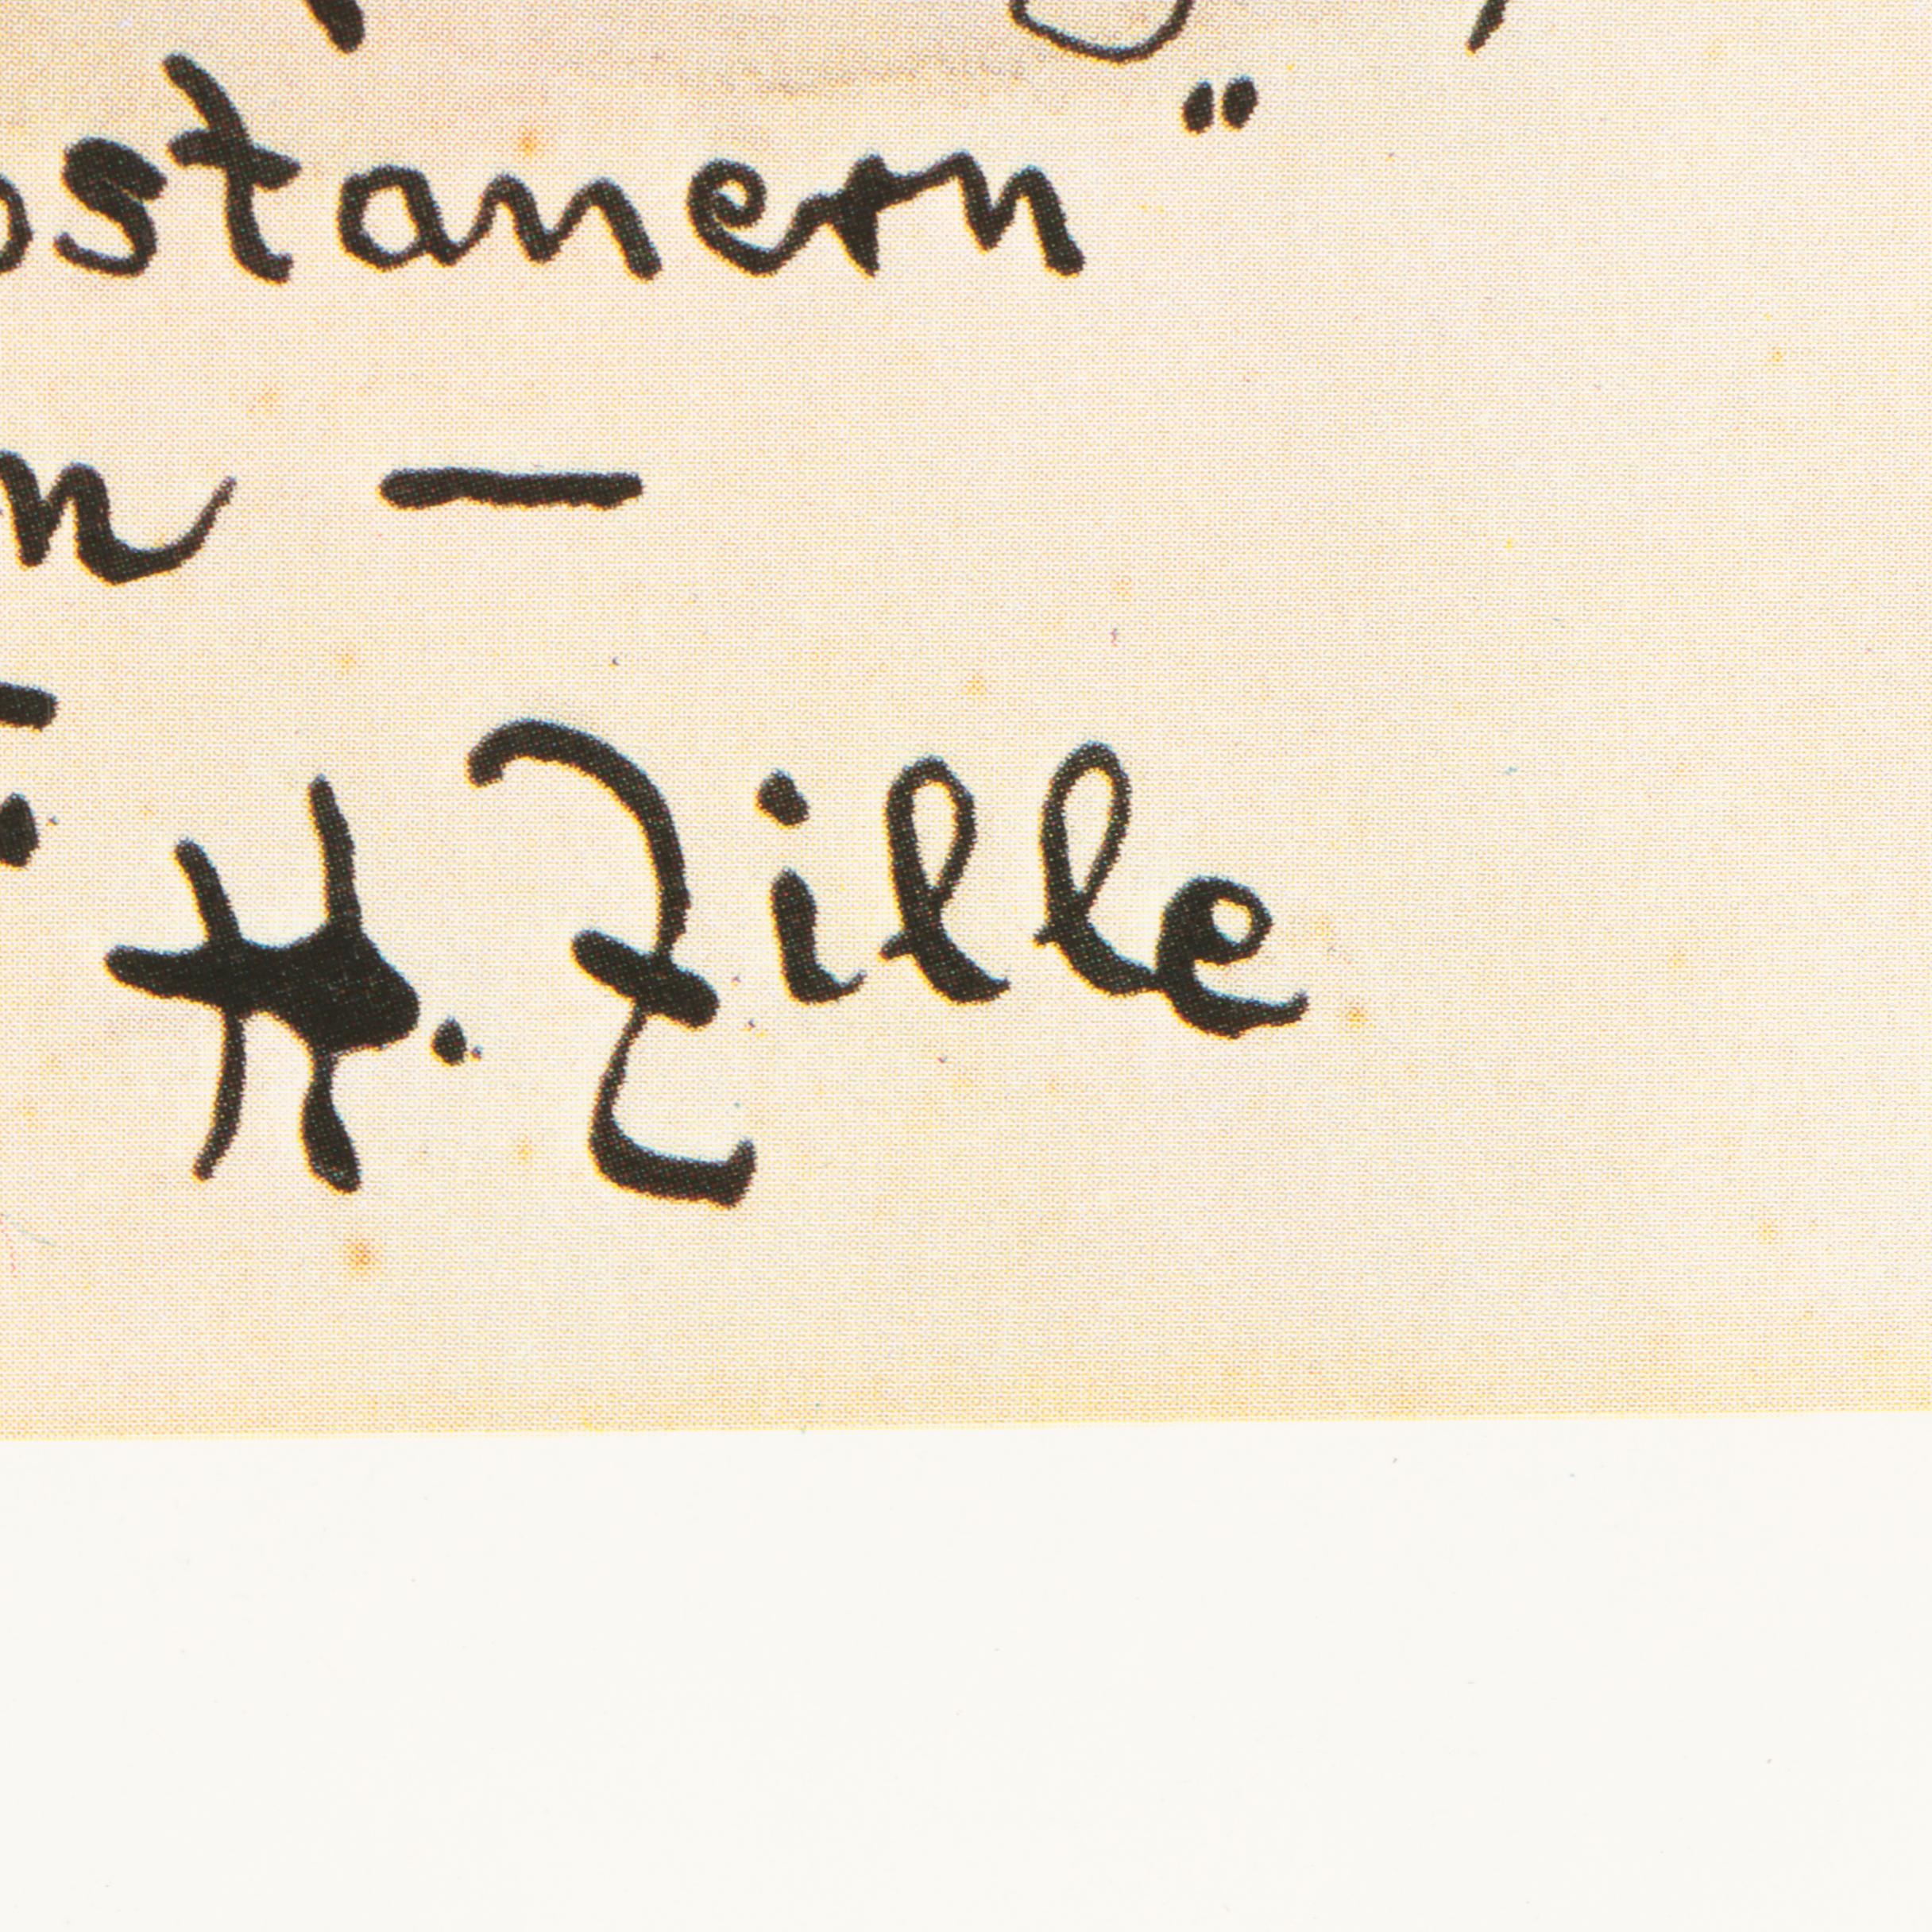 ostanern“
n —
H. Zille